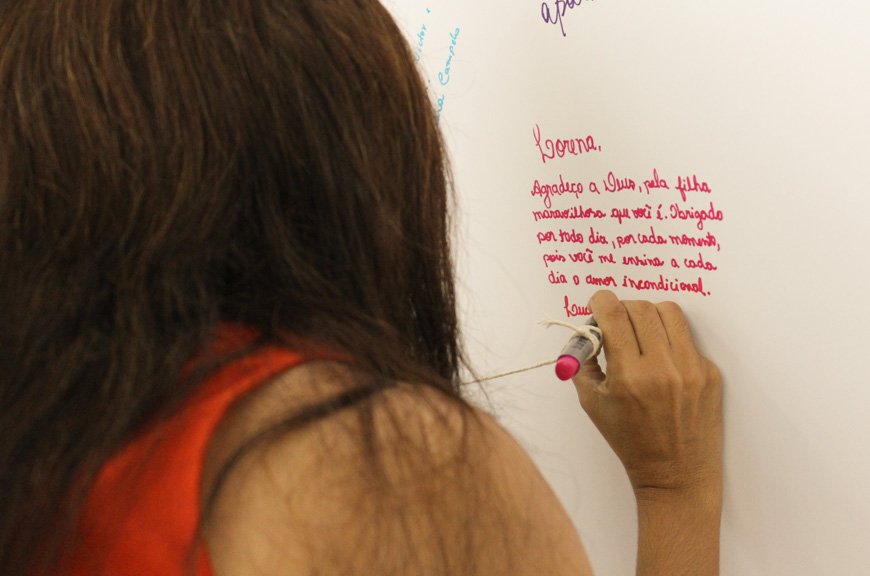 Campelo
Lorena,
Agradeço a Deus, pela filha
maravilhosa que você é. Obrigado
por todo dia, por cada momento,
pois você me ensina a cada
dia o amor incondicional.